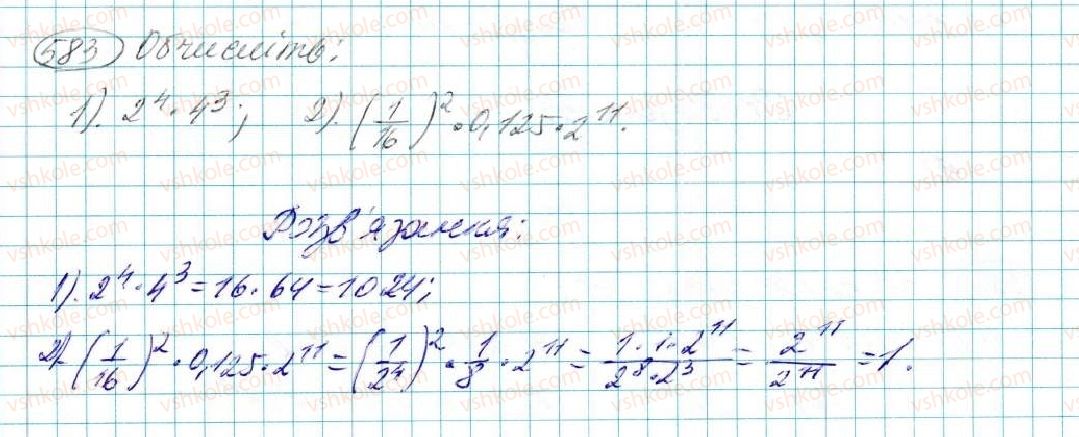 583 Обчисліть:
1). 2⁴·4³; 2). (1/16)²·0,125·2¹¹.
Розв'язання:
1). 2⁴·4³=16·64=1024;
2). (1/16)²·0,125·2¹¹=(1/2⁴)²·1/8·2¹¹=1·1·2¹¹/2⁸·2³=2¹¹/2¹¹=1.